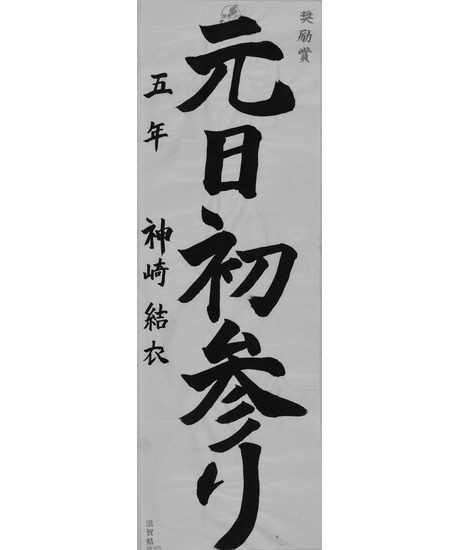 奨励賞
元日初参り
五年 神崎結衣
滋賀県